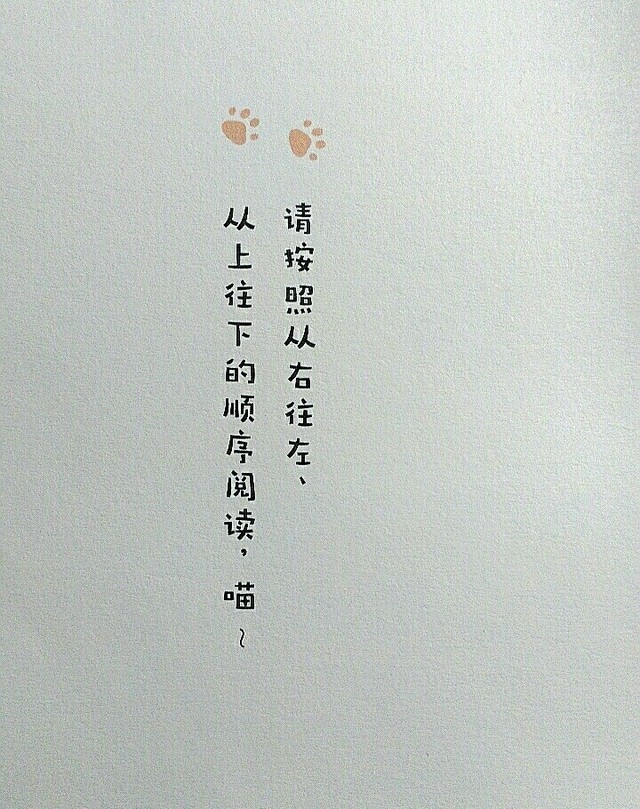 请按照从右往左、
从上往下的顺序阅读，喵～